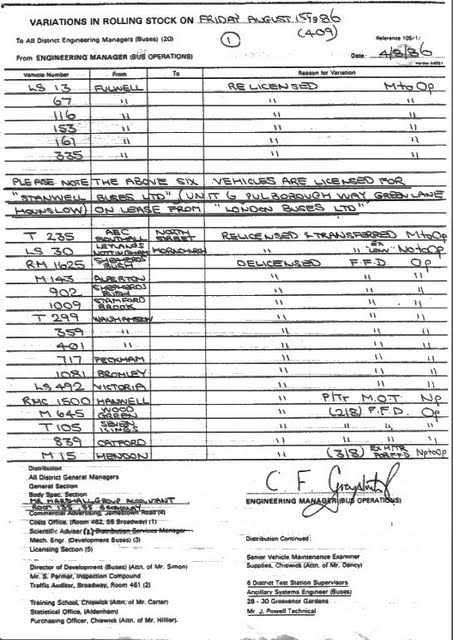 VARIATIONS IN ROLLING STOCK ON FRIDAY AUGUST 1ST 1986
To All District Engineering Managers (Buses) (20) (1) (409) Reference 105/1/
From ENGINEERING MANAGER (BUS OPERATIONS) Date: 4/8/86
Vehicle Number From To Reason for Variation
LS 13 FULWELL RELICENSED M to Op
67 " " "
116 " " "
153 " " "
161 " " "
335 " " "
PLEASE NOTE THE ABOVE SIX VEHICLES ARE LICENSED FOR
"STANWELL BUSES LTD" (UNIT 6 PULBOROUGH WAY GREEN LANE
HOUNSLOW) ON LEASE FROM "LONDON BUSES LTD"
T 235 AEC SOUTHALL NORTH STREET RELICENSED & TRANSFERRED M to Op
LS 30 LEYLANDS NOTTINGHAM HORNCHURCH " " EX LOAN N to Op
RM 1625 SHEPHERDS BUSH DELICENSED F.F.D. Op
M 143 ALPERTON " " "
902 SHEPHERDS BUSH " " "
1009 STAMFORD BROOK " " "
T 299 WALTHAMSTOW " " "
359 " " " "
401 " " " "
717 PECKHAM " " "
1081 BROMLEY " " "
LS 492 VICTORIA " " "
RMC 1500 HANWELL " P/Tr M.O.T. Np
M 645 WOOD GREEN " (2/8) F.F.D. Op
T 105 SEVEN KINGS " " "
839 CATFORD " " "
M 15 HENDON " (3/8) Np to Op
Distribution
All District General Managers
General Section
Body Spec. Section
MR MARSHALL GROUP ACCOUNTANT
ROOM 133, 55 BROADWAY
Commercial Advertising, Jamestown Road (4)
Costs Office. (Room 462. 55 Broadway) (1)
Scientific Adviser (2) Distribution Services Manager
Mech. Engr. (Development Buses) (3)
Licensing Section (5)
Director of Development (Buses) (Attn. of Mr. Simon)
Mr. S. Parmar, Inspection Compound
Traffic Auditor, Broadway, Room 461 (2)
Training School, Chiswick (Attn. of Mr. Carter)
Statistical Office, (Aldenham)
Purchasing Officer, Chiswick (Attn. of Mr. Hillier).
ENGINEERING MANAGER (BUS OPERATIONS)
Distribution Continued:
Senior Vehicle Maintenance Examiner
Supplies, Chiswick (Attn. of Mr. Dancy)
6 District Test Station Supervisors
Ancillary Systems Engineer (Buses)
28 - 30 Grosvenor Gardens
Mr. J. Powell Technical